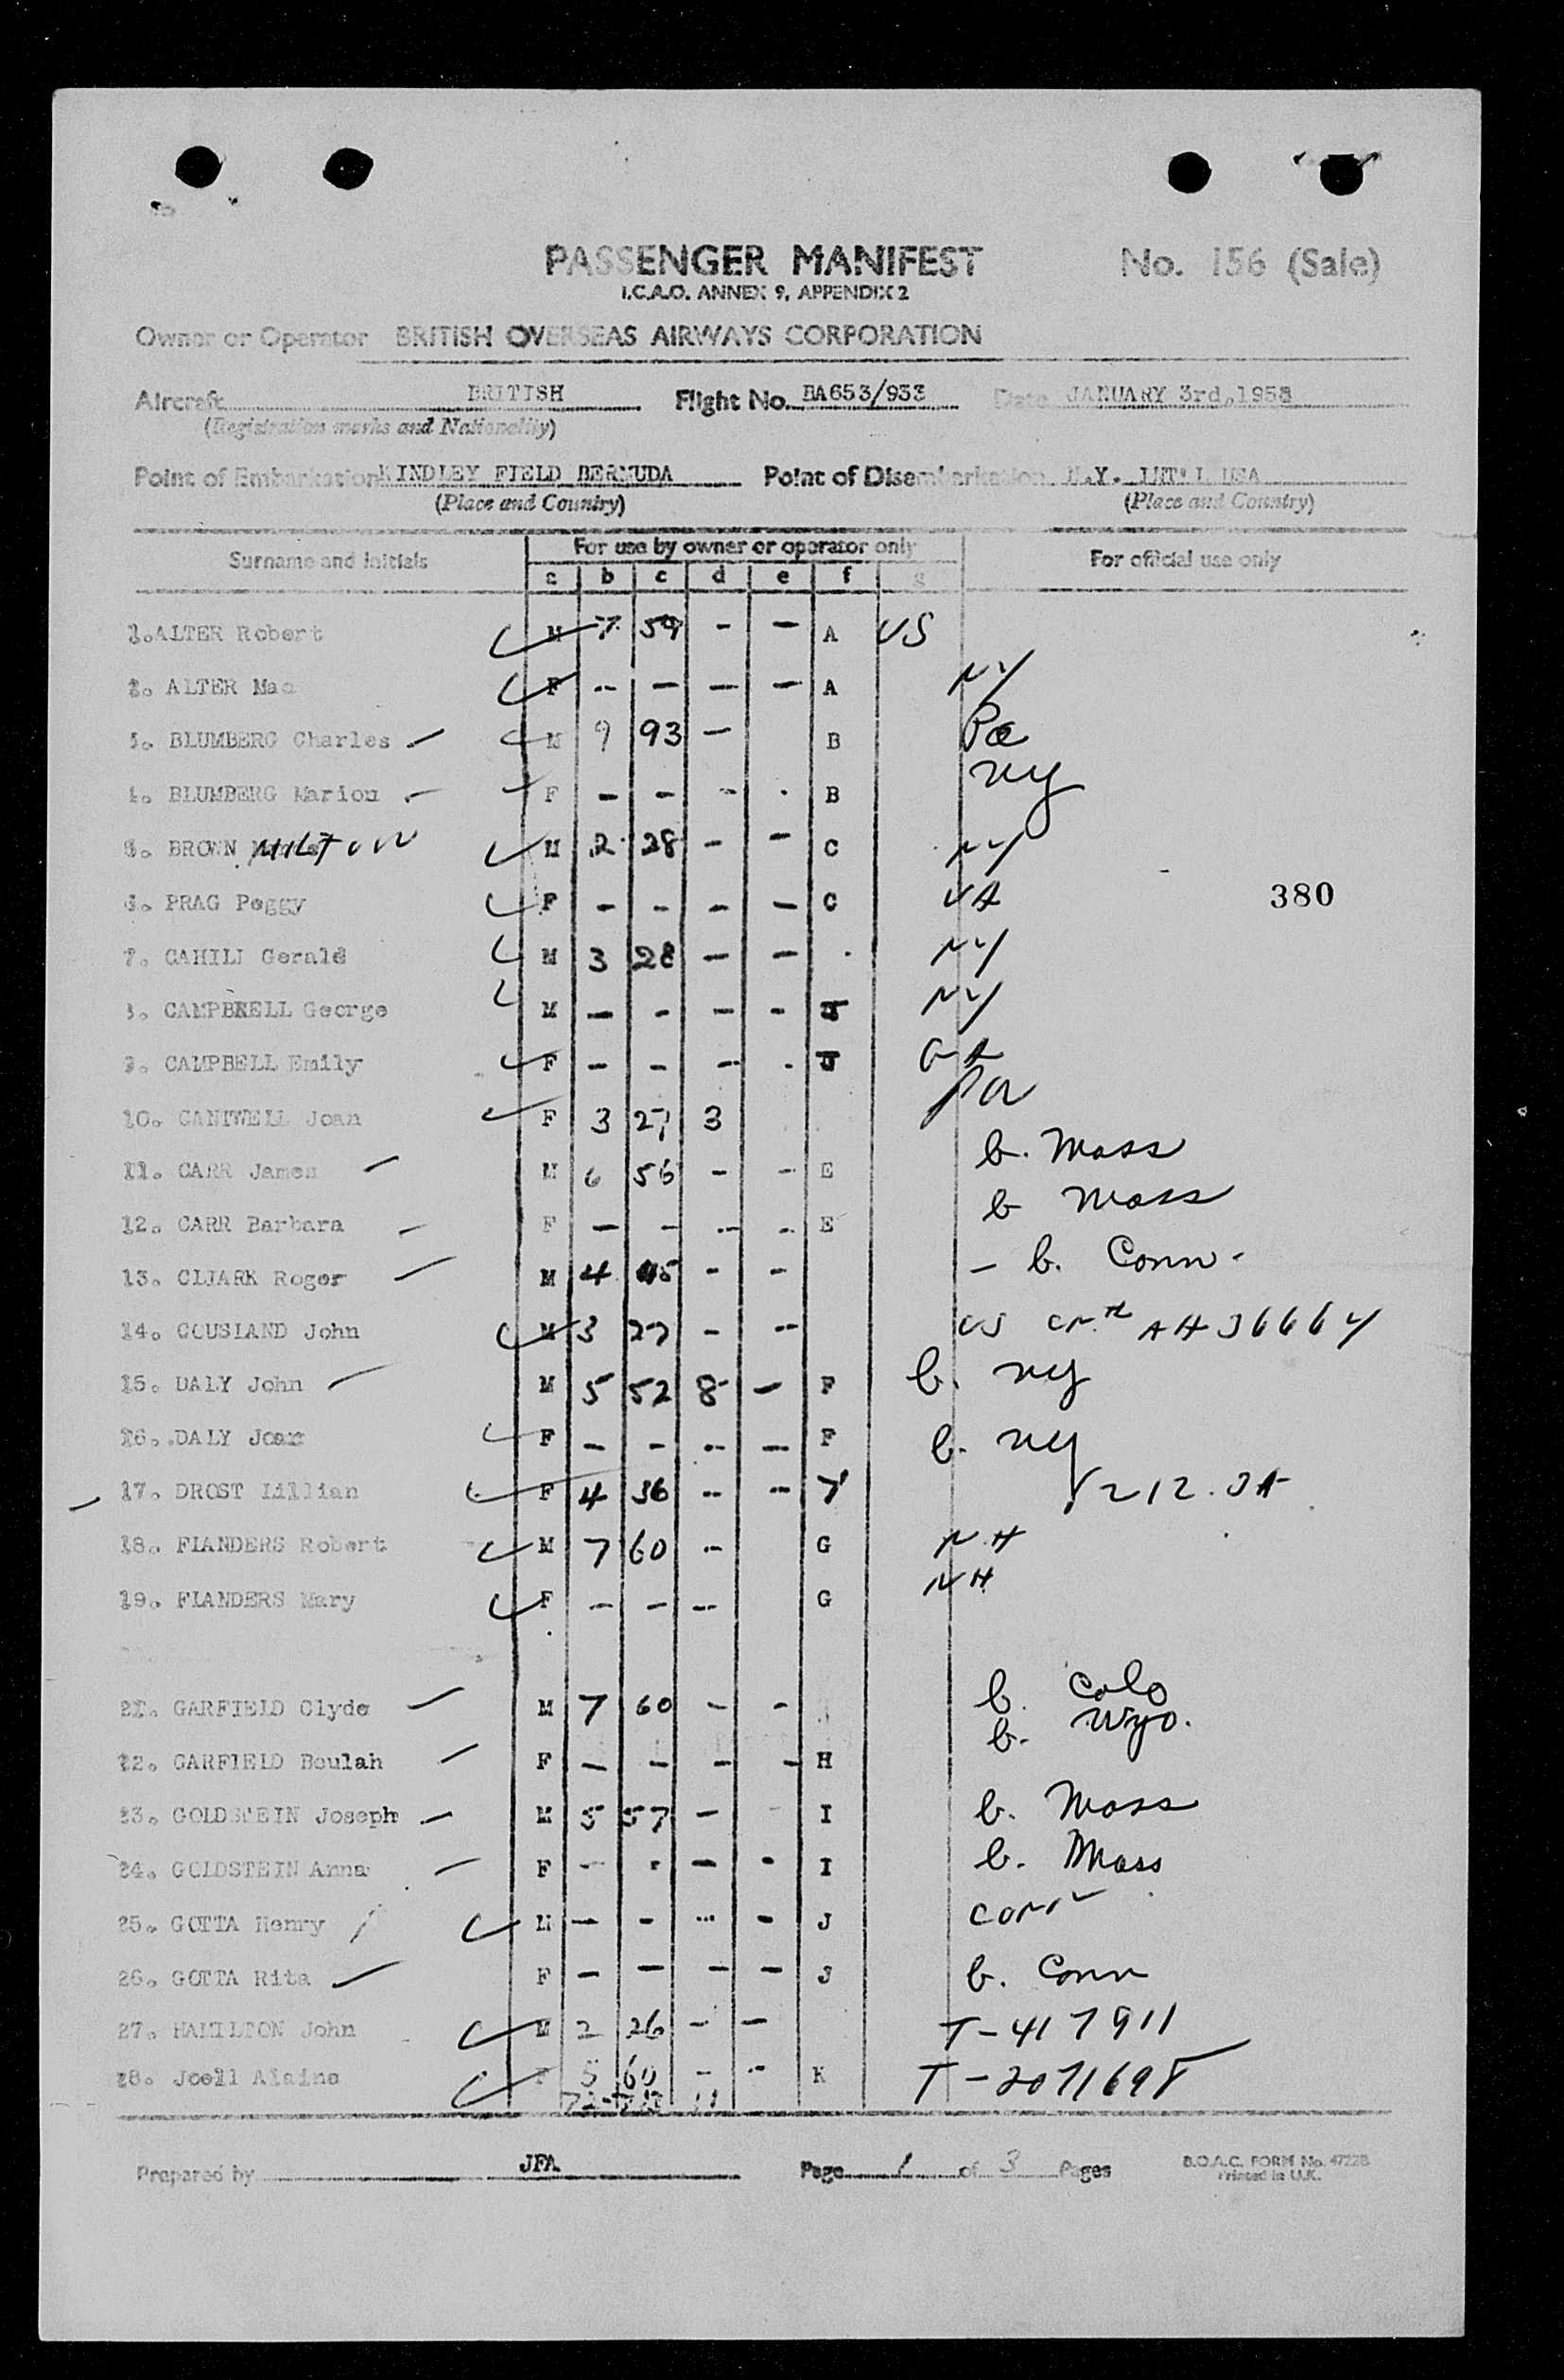 PASSENGER MANIFEST No. 156 (Sale)
I.C.A.O. ANNEX 9, APPENDIX 2
Owner or Operator BRITISH OVERSEAS AIRWAYS CORPORATION
Aircraft BRITISH Flight No. BA653/933 Date JANUARY 3rd, 1958
(Registration marks and Nationality)
Point of Embarkation KINDLEY FIELD BERMUDA Point of Disembarkation N.Y. INT'L USA
(Place and Country) (Place and Country)
Surname and Initials For use by owner or operator only For official use only
a b c d e f g
1. ALTER Robert M 7 59 - - A US
2. ALTER Mae F - - - - A NY
3. BLUMBERG Charles M 9 93 - B Pa
4. BLUMBERG Marion F - - - - B ny
5. BROWN MILTON M 2 28 - - C NY
6. PRAG Peggy F - - - - C
380
7. CAHILL Gerald M 3 28 - - NY
8. CAMPBEELL George M - - - - J NY
9. CAMPBELL Emily F - - - - J
10. CANTWELL Joan F 3 27 3 Pa
11. CARR James M 6 56 - - E b. Mass
12. CARR Barbara F - - - - E b Mass
13. CLJARK Roger M 4 45 - - - b. Conn-
14. COUSLAND John M 3 27 - - US
15. DALY John M 5 52 8 - F b. ny
16. DALY Joan F - - - - F b. ny
17. DROST Lillian F 4 36 - -
18. FLANDERS Robert M 7 60 - G N.H
19. FLANDERS Mary F - - - G NH
21. GARFIELD Clyde M 7 60 - - b. Colo
22. GARFIELD Beulah F - - - - H b. Wyo.
23. GOLDSTEIN Joseph M 5 57 - - I b. Mass
24. GOLDSTEIN Anna F - - - - I b. Mass
25. GOTTA Henry M - - - - J Conn
26. GOTTA Rita F - - - - J b. Conn
27. HAMILTON John M 2 26 - - T-417911
28. Joell Alaine F 5 60 - - K T-2071698
Prepared by JFA Page 1 of 3 Pages B.O.A.C. FORM No. 4722B
Printed in U.K.